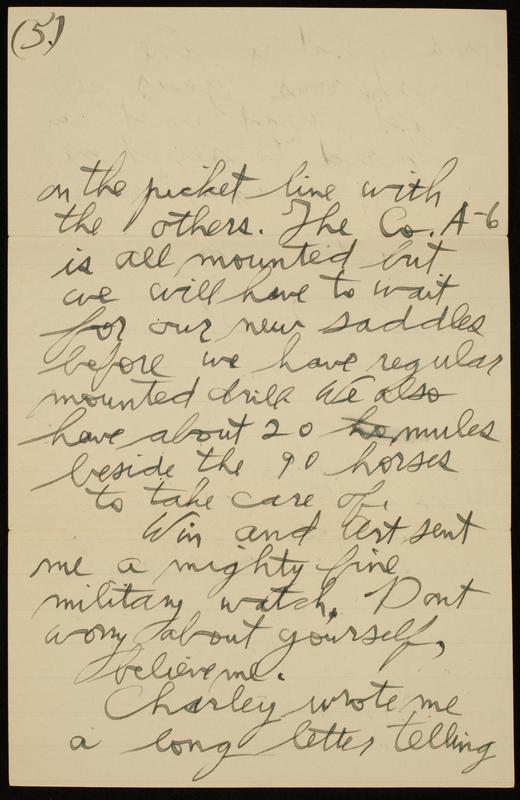 (5.)
on the picket line with
the others. The Co. A-6
is all mounted but
we will have to wait
for our new saddles
before we have regular
mounted drill We also
have about 20 ho mules
beside the 90 horses
to take care of.
Win and Art sent
me a mighty fine
military watch. Dont
worry about yourself,
believe me.
Charley wrote me
a long letter telling